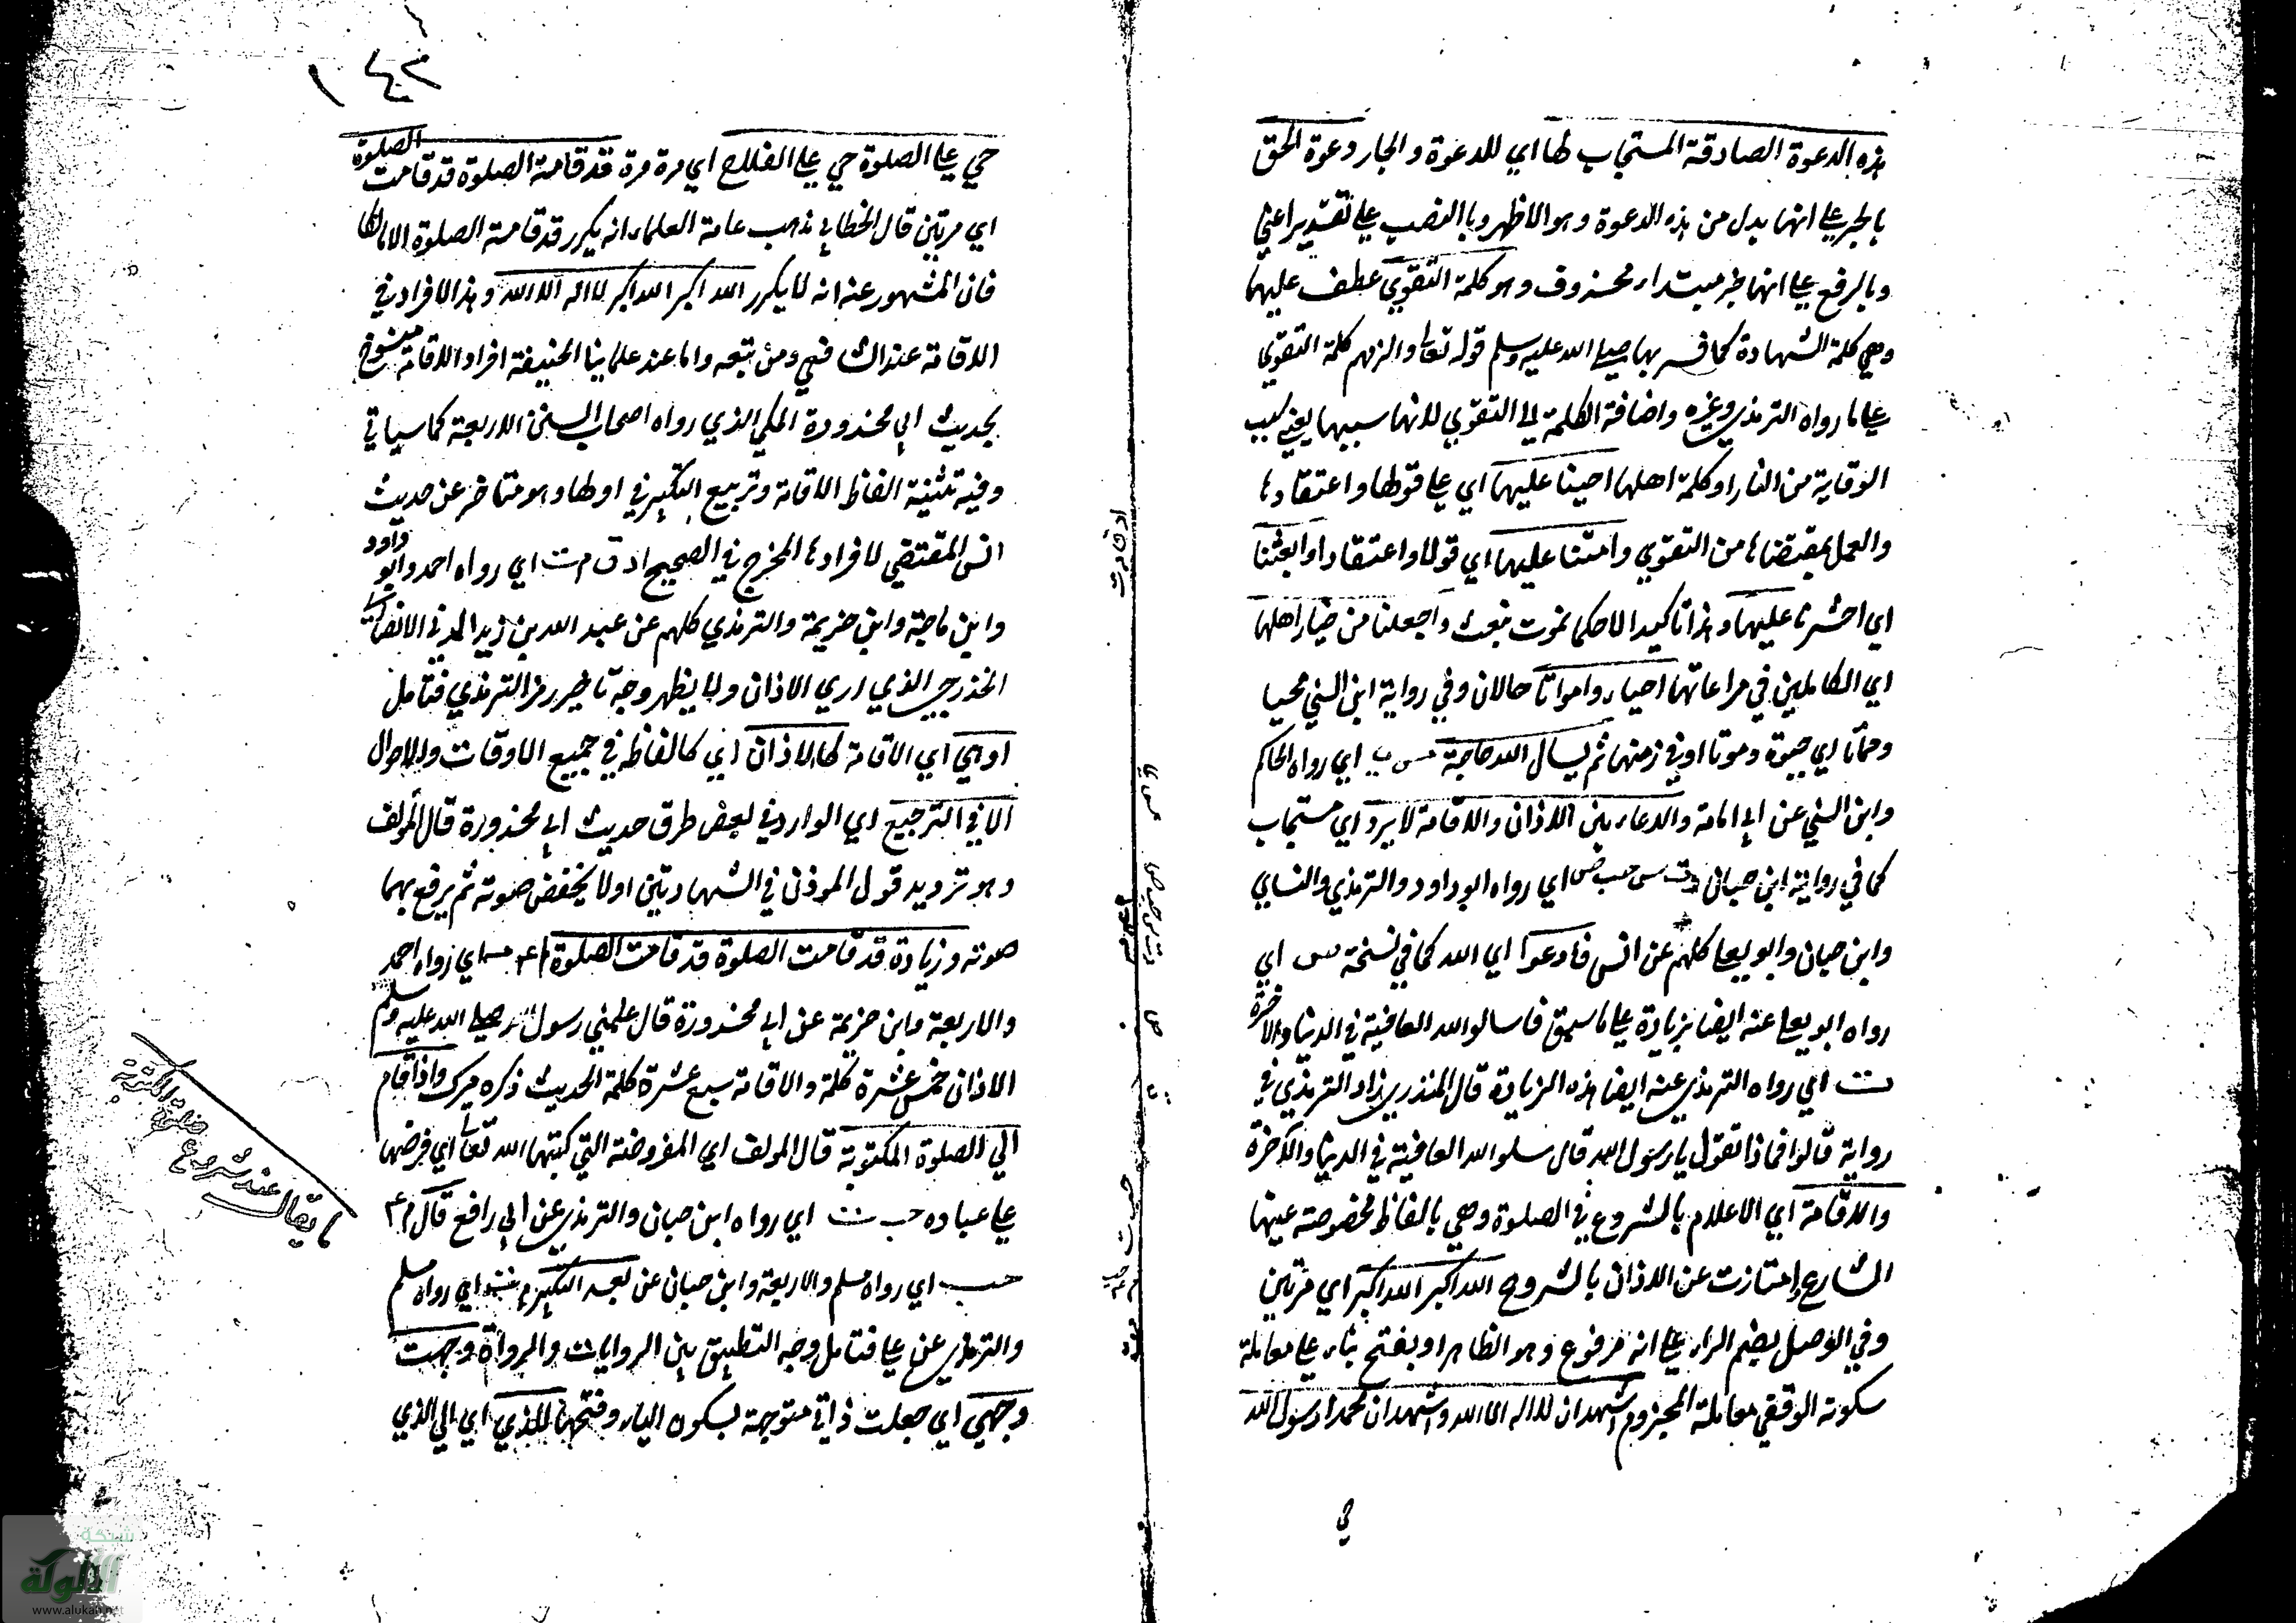 هذه الدعوة الصادقة المستجاب لها اي للدعوة والجار دعوة الحق
بالجر على انها بدل من هذه الدعوة وهو الاظهر وبالنصب على تقدير اعني
وبالرفع على انها خبر مبتداء محذوف وهو كلمة التقوي عطف عليها
وهي كلمة الشهادة كما فسر بها صلى الله عليه وسلم قوله تعالى والزمهم كلمة التقوي
على ما رواه الترمذي وغيره واضافة الكلمة الى التقوي لانها سببها يعني سبب
الوقاية من النار او كلمة اهلها احينا عليها اي على قولها واعتقادها
والعمل بمقتضاها من التقوي وامتنا عليها اي قولا واعتقادا وابعثنا
اي احشرنا عليها وهذا تاكيد الا كما تموت تبعث واجعلنا من خيار اهلها
اي الكاملين في مراعاتها احياء وامواتا حالان وفي رواية ابن السني محيا
ومماتا اي حيوة وموتا او في زمنهما ثم يسال الله حاجة مس ي اي رواه الحاكم
وابن السني عن ابي امامة والدعاء بين الاذان والاقامة لا يرد اي مستجاب
كما في رواية ابن حبان د ت س حب ص اي رواه ابو داود والترمذي والنسايي
وابن حبان وابو يعلى كلهم عن انس فادعوا اي الله كما في نسخة ص اي
رواه ابو يعلى عنه ايضا بزيادة على ما سبق فاسالوا الله العافية في الدنيا والاخرة
ت اي رواه الترمذي عنه ايضا هذه الزيادة قال المنذري زاد الترمذي في
رواية قالوا فماذا نقول يا رسول الله قال سلوا الله العافية في الدنيا والآخرة
والاقامة اي الاعلام بالشروع في الصلوة وهي بالفاظ مخصوصة عينها
الشارع امتازت عن الاذان بالشروع الله اكبر الله اكبر اي مرتين
وفي الوصل بضم الراء على انه مرفوع وهو الظاهر او بفتح بناء على معاملة
سكونه الوقفي معاملة المجزوم اشهد ان لا اله الا الله واشهد ان محمدا رسول الله
حي
١٤٣
حي على الصلوة حي على الفلاح اي مرة مرة قد قامت الصلوة قد قامت الصلوة
اي مرتين قال الخطابي ذهب عامة العلماء انه يكرر قد قامت الصلوة الا مالكا
فان المشهور عنه انه لا يكرر الله اكبر الله اكبر لا اله الا الله وهذا الافراد في
الاقامة عند الشافعي ومن تبعه واما عند علمائنا الحنيفة افراد الاقامة منسوخ
بحديث ابي محذورة المكي الذي رواه اصحاب السنن الاربعة كما سياتي
وفيه تثنية الفاظ الاقامة وتربيع التكبير في اولها وهو متاخر عن حديث
انس المقتضي لافرادها المخرج في الصحيح اد ق مه ت اي رواه احمد وابو داود
وابن ماجة وابن خزيمة والترمذي كلهم عن عبد الله بن زيد المدني الانصاري
الخزرجي الذي اري الاذان ولا يظهر وجه تاخير رمز الترمذي فتامل
او هي اي الاقامة كالاذان اي كالفاظه في جميع الاوقات والاحوال
الا في الترجيع اي الوارد في بعض طرق حديث ابي محذورة قال المولف
وهو ترديد قول الموذن في الشهادتين اولا يخفض صوته ثم يرفع بهما
صوته وزيادة قد قامت الصلوة قد قامت الصلوة ا عه مه اي رواه احمد
والاربعة وابن خزيمة عن ابي محذورة قال علمني رسول الله صلى الله عليه وسلم
الاذان خمس عشرة كلمة والاقامة سبع عشرة كلمة الحديث ذكره ميرك واذا قام
الي الصلوة المكتوبة قال المولف اي المفروضة التي كتبها الله تعالى اي فرضها
على عباده حب ت اي رواه ابن حبان والترمذي عن ابي رافع قال م عه
حب اي رواه مسلم والاربعة وابن حبان عن بعد التكبير م ت اي رواه مسلم
والترمذي عن علي فتامل وجه التطبيق بين الروايات والرواة وجهت
وجهي اي جعلت ذاتي متوجهة بسكون الياء وفتحها للذي اي الي الذي
ما يقال عند شروع
صلوة المكتوبة
شبكة
الألوكة
www.alukah.net